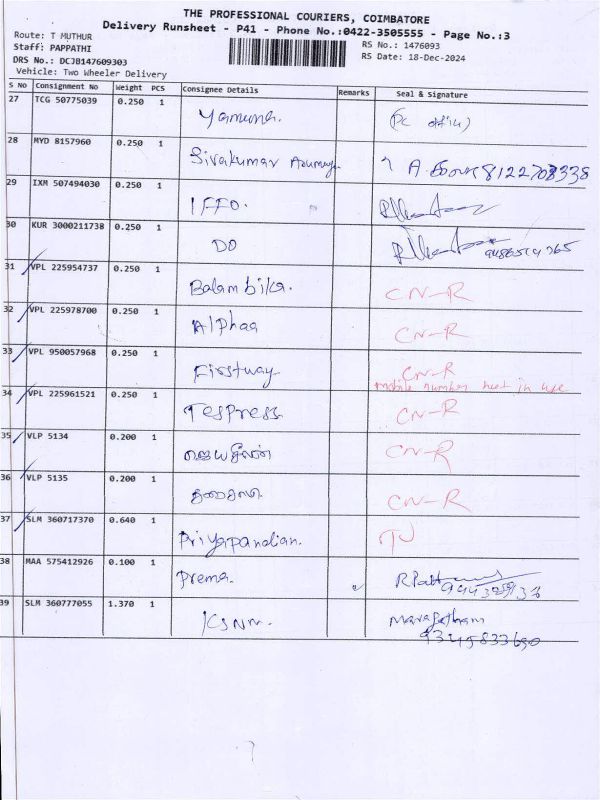 THE PROFESSIONAL COURIERS, COIMBATORE
Delivery Runsheet - P41 - Phone No.:0422-3505555 - Page No.:3
Route: T MUTHUR
RS No.: 1476093
Staff: PAPPATHI
RS Date: 18-Dec-2024
DRS No.: DCJB147609303
Vehicle: Two Wheeler Delivery
S No Consignment No Weight PCS Consignee Details Remarks Seal & Signature
27 TCG 50775039 0.250 1 Yamuna. (PC office)
28 MYD 8157960 0.250 1 Sivakumar 8122708338
29 IXM 507494030 0.250 1 IFFO.
30 KUR 3000211738 0.250 1 DO
31 VPL 225954737 0.250 1 Balambika. CN-R
32 VPL 225978700 0.250 1 Alphaa CN-R
33 VPL 950057968 0.250 1 Firstway CN-R
mobile number not in use
34 VPL 225961521 0.250 1 Tespress CN-R
35 VLP 5134 0.200 1 ஜெயசீலன் CN-R
36 VLP 5135 0.200 1 CN-R
37 SLM 360717370 0.640 1 Priyapandian.
38 MAA 575412926 0.100 1 Prema.
39 SLM 360777055 1.370 1 KSNM.
9345833690